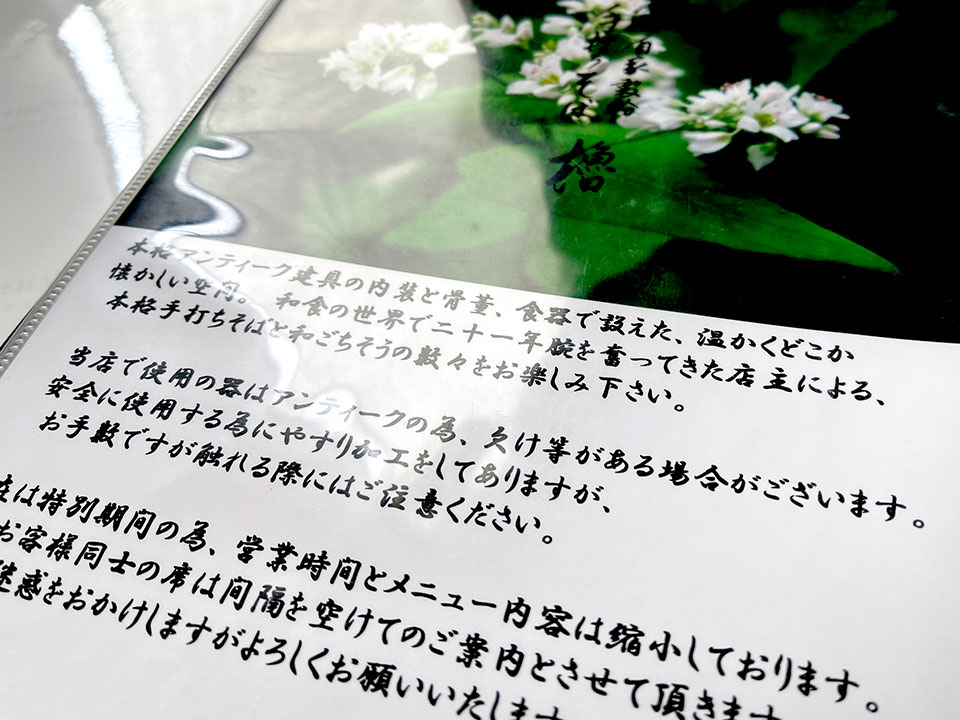 自家製粉
手打ちそば
櫓
本格アンティーク建具の内装と骨董、食器で設えた、温かくどこか
懐かしい空間。 和食の世界で二十一年腕を奮ってきた店主による、
本格手打ちそばと和ごちそうの数々をお楽しみ下さい。
当店で使用の器はアンティークの為、欠け等がある場合がございます。
安全に使用する為にやすり加工をしてありますが、
お手数ですが触れる際にはご注意ください。
在は特別期間の為、営業時間とメニュー内容は縮小しております。
お客様同士の席は間隔を空けてのご案内とさせて頂きます
迷惑をおかけしますがよろしくお願いいたします